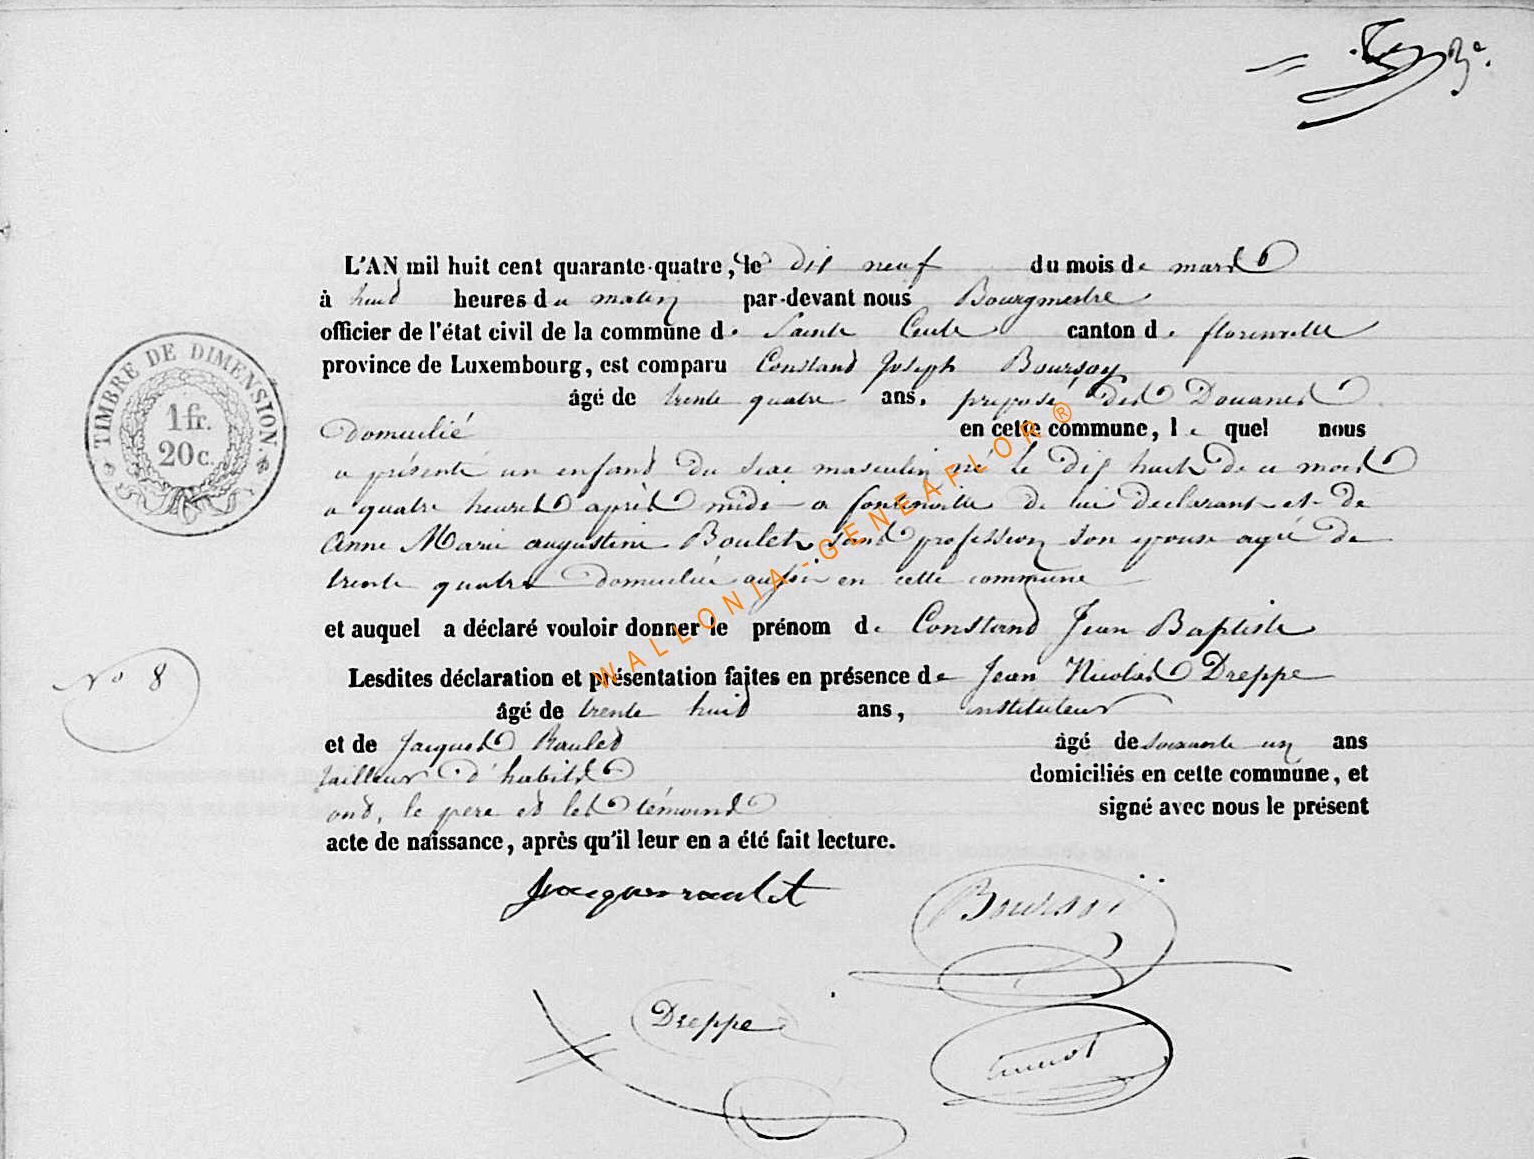 L'AN mil huit cent quarante-quatre, le dix neuf du mois de mars
à huit heures du matin par-devant nous Bourgmestre
officier de l'état civil de la commune de Sainte Cecile canton de florenville
province de Luxembourg, est comparu Constand Joseph Boursoy
âgé de trente quatre ans, preposé des Douanes
Domicilié en cette commune, le quel nous
a présenté un enfand du sexe masculin né le dix huit de ce mois
a quatre heures après midi a fontenoille de lui declarant et de
Anne Marie augustine Boulet sans profession son epouse agée de
trente quatre Domiciliée aussi en cette commune
et auquel a déclaré vouloir donner le prénom de Constand Jean Baptiste
Lesdites déclaration et présentation faites en présence de Jean Nicolas Dreppe
âgé de trente huit ans, instituteur
et de Jacques Raulet âgé de soixante un ans
tailleur d'habits domiciliés en cette commune, et
ont, le pere et les témoins signé avec nous le présent
acte de naissance, après qu'il leur en a été fait lecture.
TIMBRE DE DIMENSION.
1 fr.
20 c.
No 8
Jacques raulet
Boursoï
Dreppe
WALLONIA-GENEAFLOR®